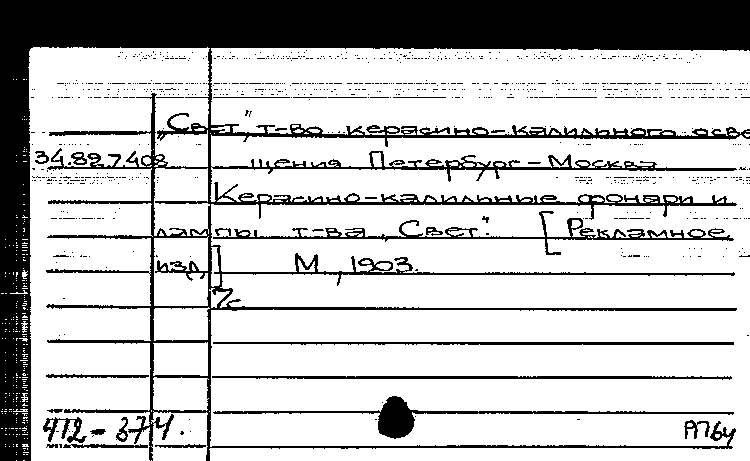 „Свет", т-во керасино-калильного осве
34.89.7408 щения Петербург-Москва
Керасино-калильные фонари и
лампы т-ва „Свет". [Рекламное
изд.] М., 1903.
7с
412-374.